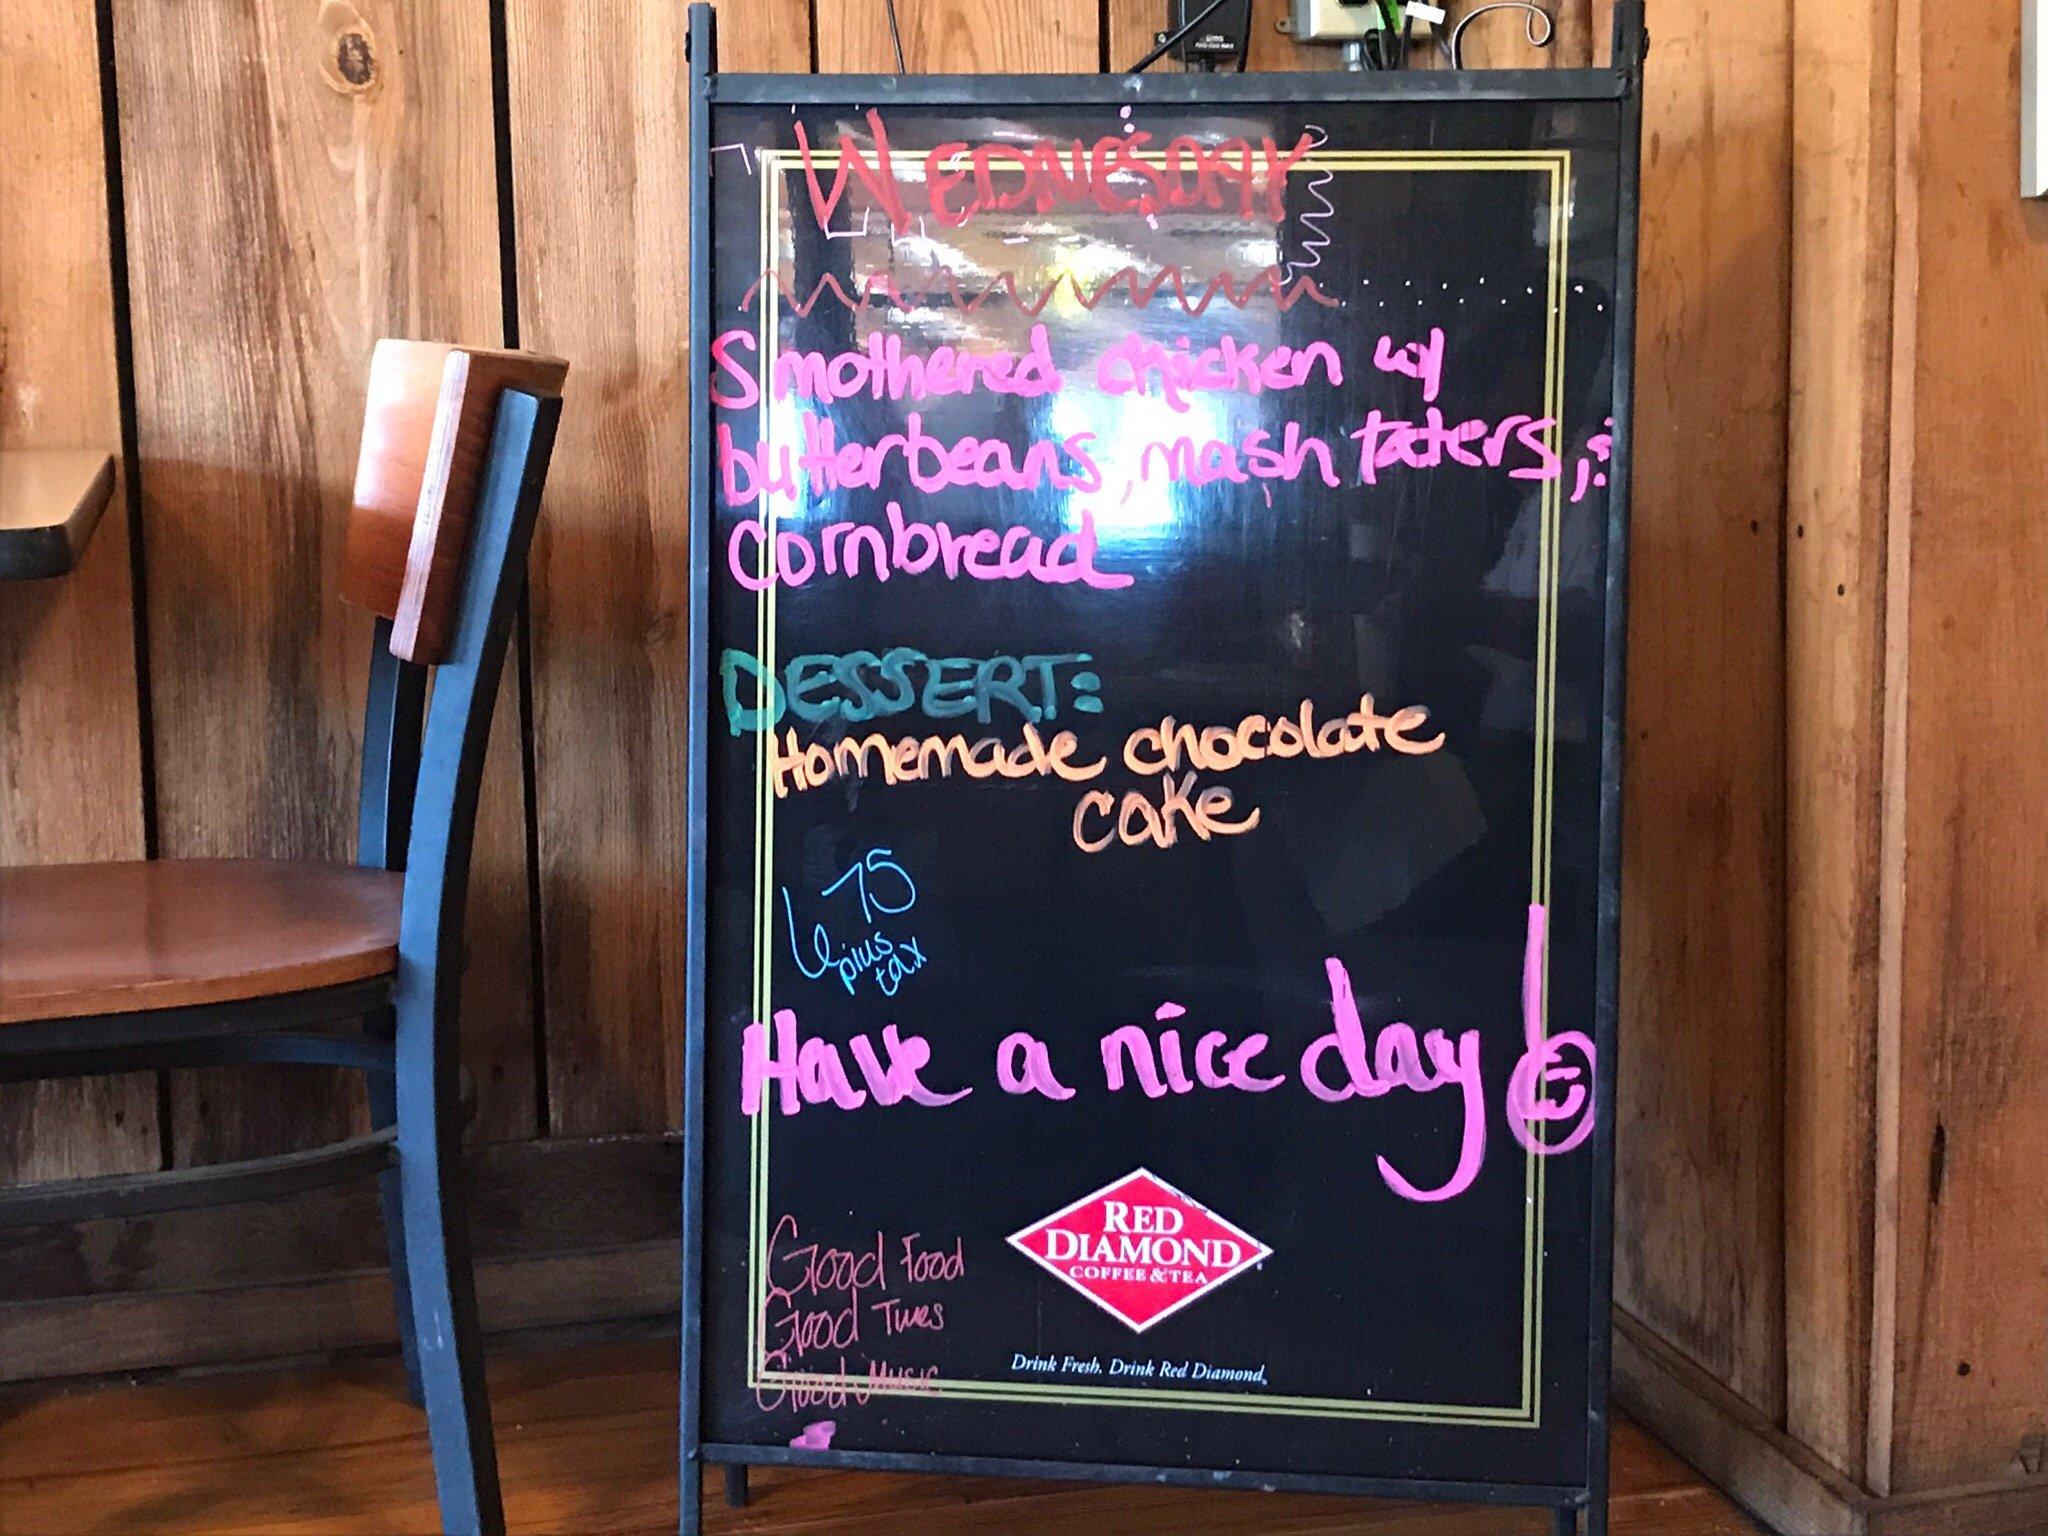 WEDNESDAY
Smothered chicken w/
butterbeans, mash taters, &
Cornbread
DESSERT:
Homemade chocolate
cake
675
plus
tax
Have a nice day!
RED
DIAMOND
COFFEE & TEA
Good Food
Good Times
Good Music
Drink Fresh. Drink Red Diamond.